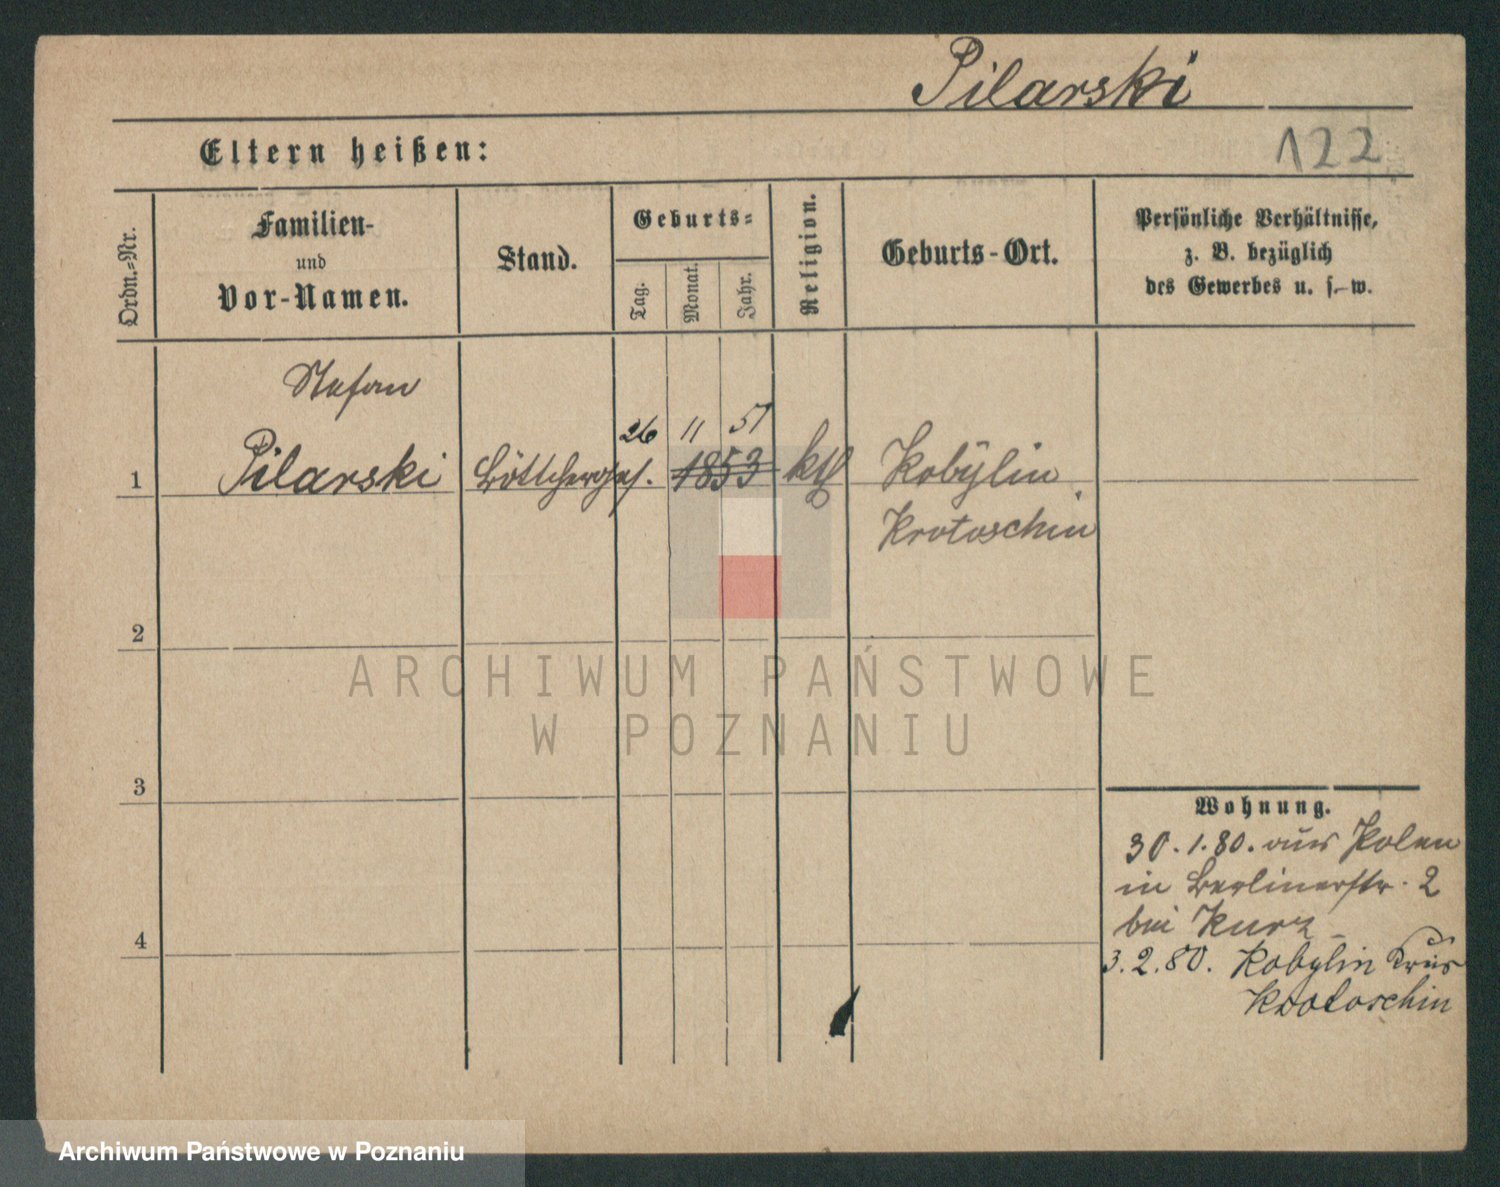 Pilarski
122
Eltern heißen:
Ordn.=Nr.
Familien-
und
Vor-Namen.
Stand.
Geburts=
Tag.
Monat.
Jahr.
Religion.
Geburts-Ort.
Persönliche Verhältnisse,
z. B. bezüglich
des Gewerbes u. s.-w.
Stefan
26 11 51
1 Pilarski Böttcherges. 1853 kth Kobylin
Krotoschin
2
ARCHIWUM PAŃSTWOWE
W POZNANIU
3
Wohnung.
30. 1. 80. aus Polen
in Berlinerstr. 2
bei Kurz
4
3. 2. 80. Kobylin Kreis
Krotoschin
Archiwum Państwowe w Poznaniu